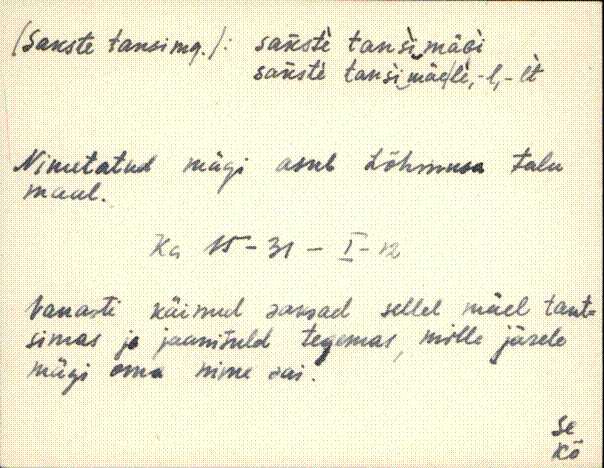 (Sakste tansimg.): sakste tansi mägi
sakste tansi mäele, -l, -lt
Nimetatud mägi asub Lõhmusa talu
maal.
Ka 15-31 - I - 12
Vanasti käinud saksad sellel mäel tant-
simas ja jaanituld tegemas, mille järele
mägi oma nime sai.
Se
Kõ